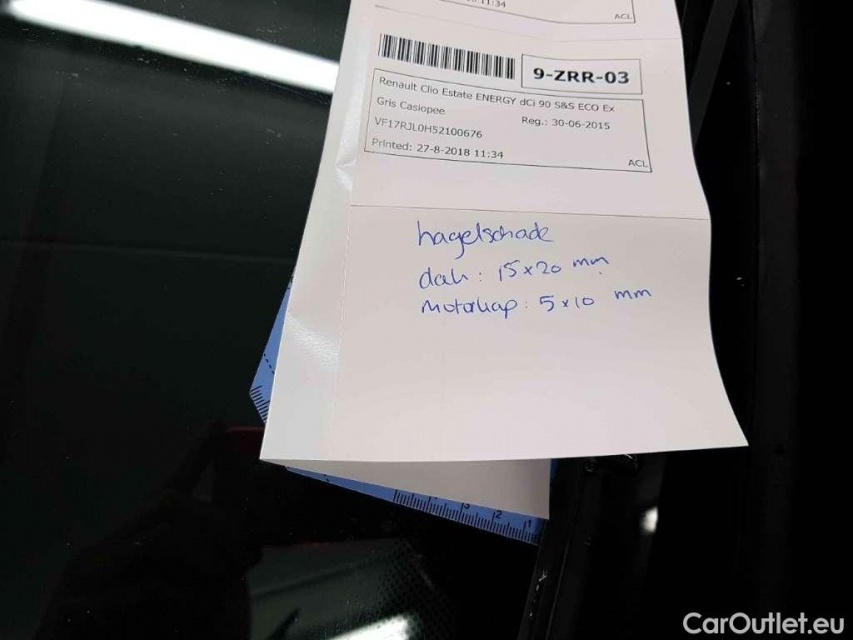 11:34
ACL
9-ZRR-03
Renault Clio Estate ENERGY dCi 90 S&S ECO Ex
Gris Casiopee
Reg.: 30-06-2015
VF17RJL0H52100676
Printed: 27-8-2018 11:34
ACL
hagelschade
dak: 15x20 mm
Motorkap: 5x10 mm
3 2 1
CarOutlet.eu